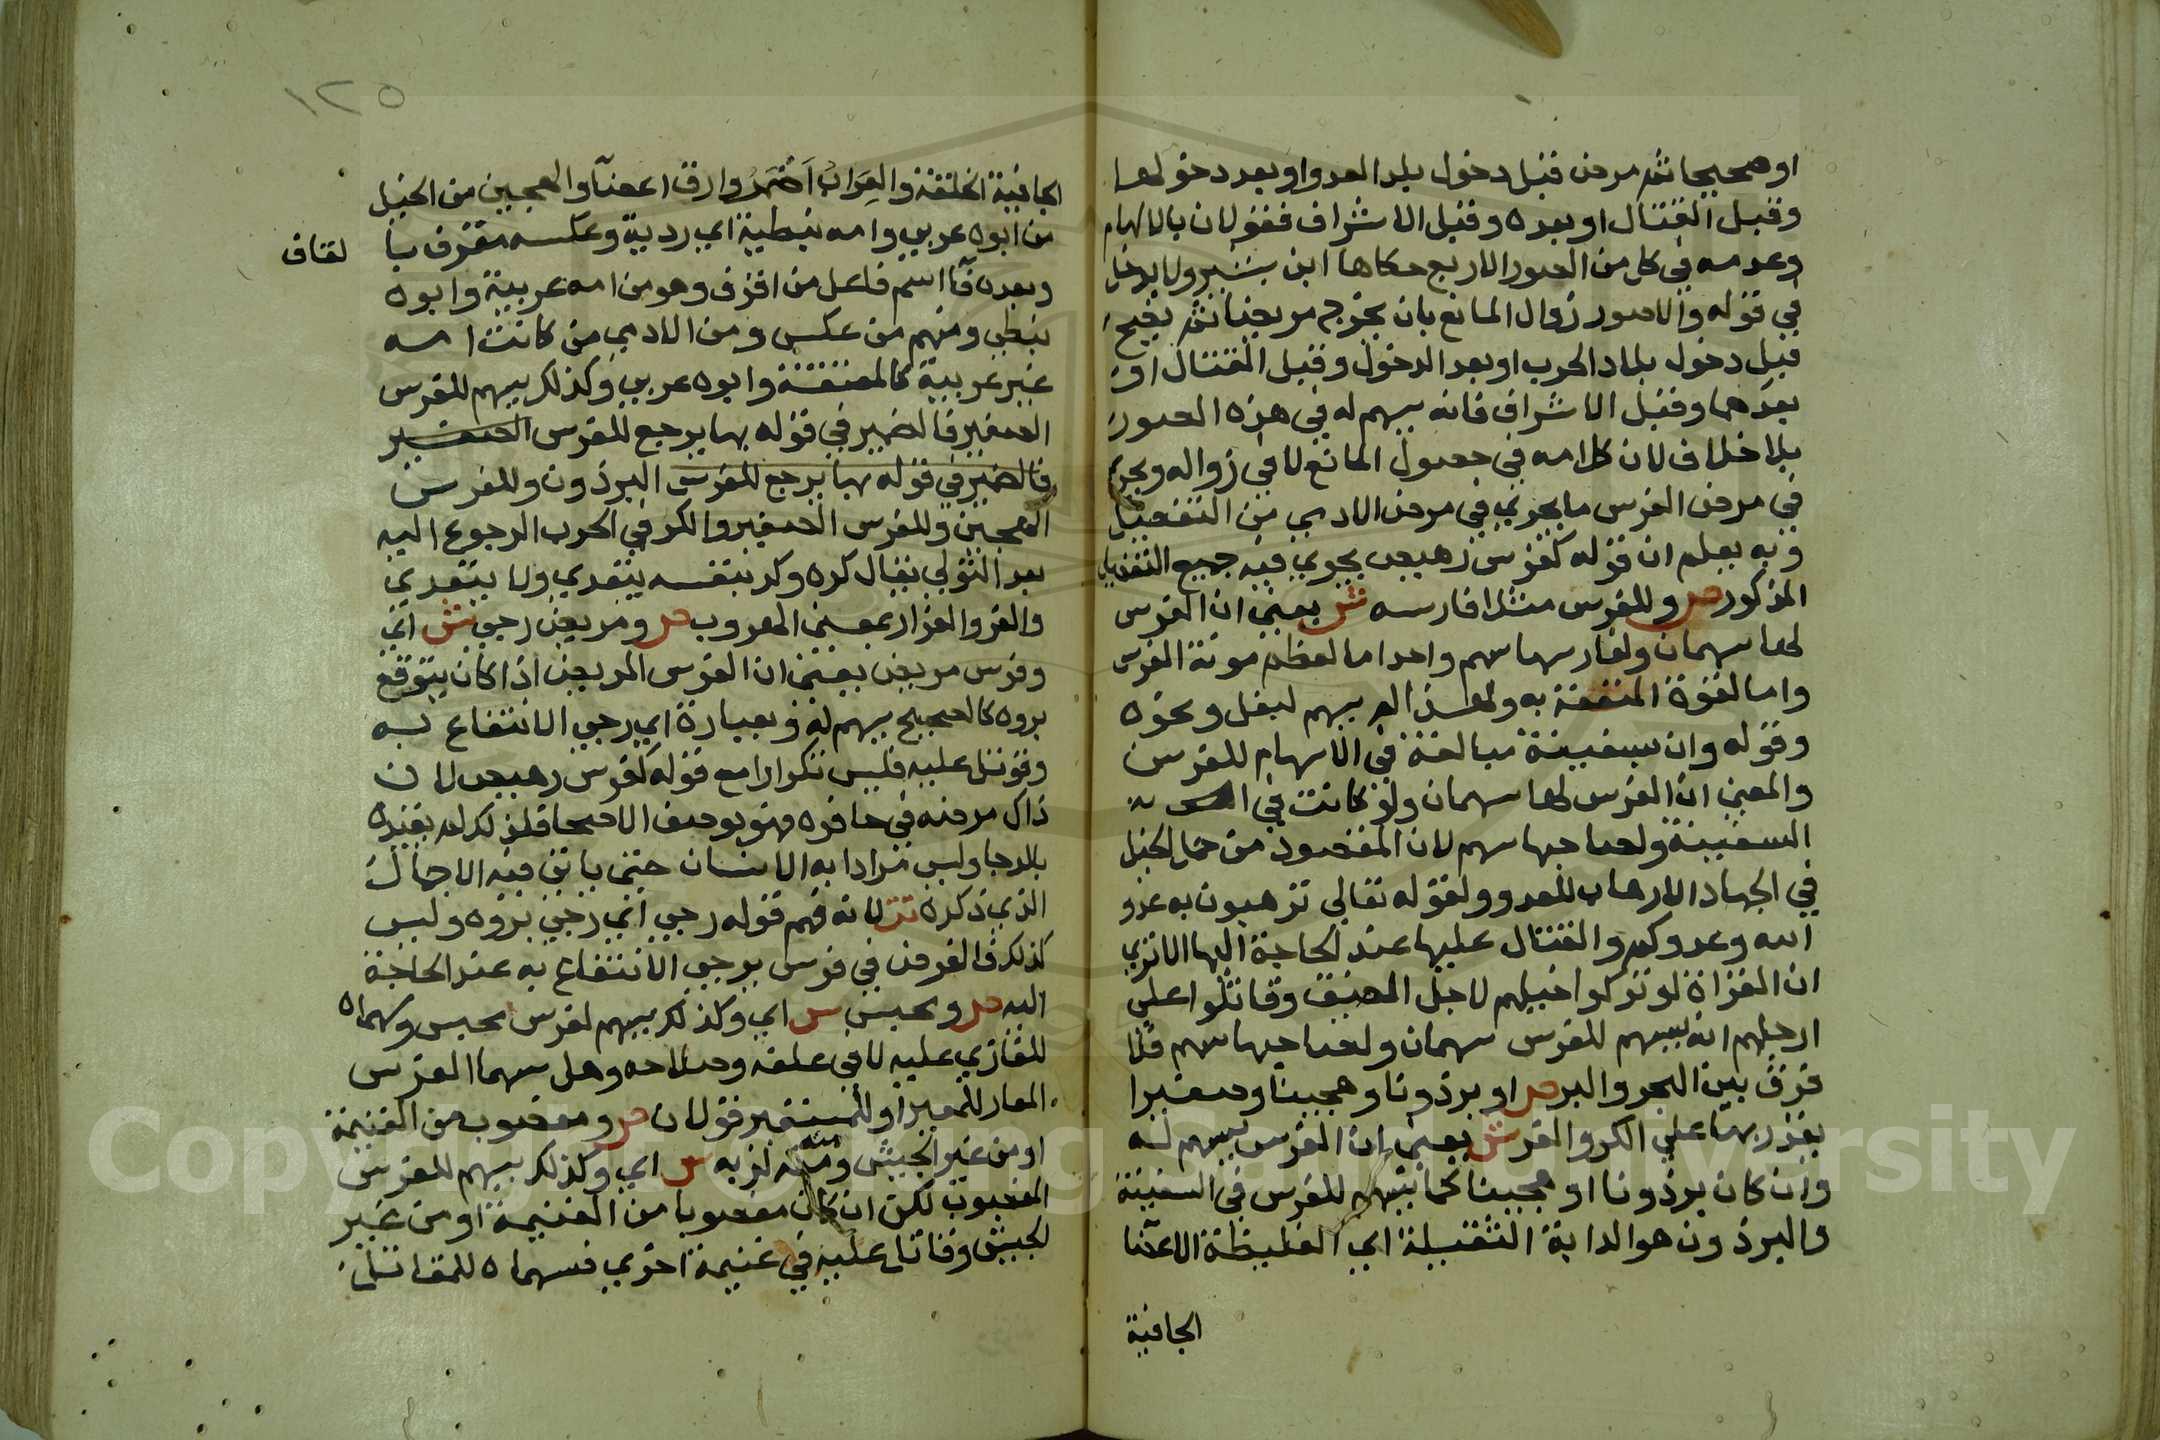 او صحيحا ثم مرض قبل دخول بلد العدو او بعد دخولها
وقبل القتال او بعده وقبل الاشراف فقولان بالاسهام
وعدمه في كل من الصور الاربع حكاها ابن بشير ولا يدخل
في قوله والا صور زوال المانع بان يخرج مريضا ثم يصح
قبل دخول بلاد الحرب او بعد الدخول وقبل القتال او
بعدهما وقبل الاشراف فانه يسهم له في هذه الصور
بلا خلاف لان كلامه في حصول المانع لا في زواله ويجري
في مرض الفرس ما يجري في مرض الادمي من التفصيل
وبه يعلم ان قوله كفرس رهيص يجري فيه جميع التفصيل
المذكور ص وللفرس مثلا فارسه ش يعني ان الفرس
لها سهمان ولفارسها سهم واحد اما لعظم مونة الفرس
واما لقوة المنفعة به ولهذا لم يسهم لبغل ونحوه
وقوله وان بسفينة مبالغة في الاسهام للفرس
والمعني ان الفرس لها سهمان ولو كانت في
السفينة ولصاحبها سهم لان المقصود من حمل الخيل
في الجهاد الارهاب للعدو ولقوله تعالي ترهبون به عدو
الله وعدوكم والقتال عليها عند الحاجة اليها الا تري
ان الغزاة لو تركوا خيلهم لاجل المضيق وقاتلوا علي
ارجلهم انه يسهم للفرس سهمان ولصاحبها سهم فلا
فرق بين البحر والبر ص او برذونا وهجينا وصغيرا
يقدر بها علي الكر والفر ش يعني ان الفرس يسهم له
وان كان برذونا او هجينا كما يسهم للفرس في السفينة
والبرذون هو الدابة الثقيلة اي الغليظة الاعضا
الجافية
١٢٥
الجافية الخلقة والعراب اضمر وارق اعضا والهجين من الخيل
من ابوه عربي وامه نبطية اي ردية وعكسه مقرف با
لقاف
وبعده فا اسم فاعل من اقرف وهو من امه عربية وابوه
نبطي ومنهم من عكس ومن الادمي من كانت امه
غير عربية كالمعتقة وابوه عربي وكذلك يسهم للفرس
الصغير فالضمير في قوله بها يرجع للفرس الصغير
فالضمير في قوله بها يرجع للفرس البرذون وللفرس
الهجين وللفرس الصغير والكر في الحرب الرجوع اليه
بعد التولي يقال كره وكر بنفسه يتعدي ولا يتعدي
والفر والفرار بمعني الهروب ص ومريض رجي ش اي
وفرس مريض يعني ان الفرس المريض اذا كان يتوقع
بروه كالصحيح يسهم له وبعبارة اي رجي الانتفاع به
وقوتل عليه فليس تكرارا مع قوله كفرس رهيص لان
ذاك مرضه في حافره فهو بوصف الاصحا فلذلك لم يقيده
بالرجا وليس مرادا به الانسان حتي ياتي فيه الاجمال
الذي ذكره تت لانه فهم قوله رجي اي رجي بروه وليس
كذلك والفرض في فرس يرجي الانتفاع به عند الحاجة
اليه ص ومحبس ش اي وكذلك يسهم لفرس محبس وسهماه
للغازي عليه لا في علفه وصلاحه وهل سهما الفرس
المعار للمعير او للمستعير قولان ص ومغصوب من الغنيمة
او من غير الجيش ومنه لربه ش اي وكذلك يسهم للفرس
المغصوب لكن ان كان مغصوبا من الغنيمة او من غير
الجيش وقاتل عليه في غنيمة اخري فسهماه للمقاتل